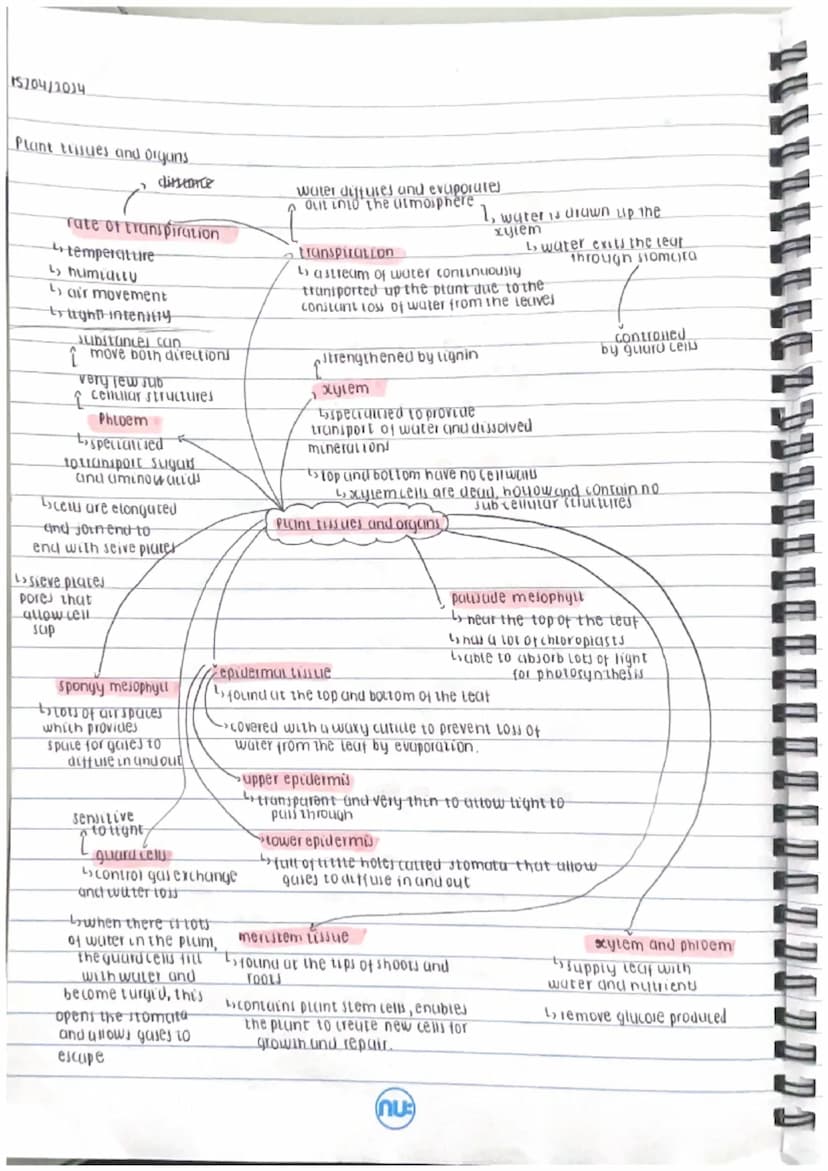 15/04/2024
Plant tissues and organs
distance
rate of transpiration
↳ temperature
↳ humidity
↳ air movement
↳ light intensity
water diffuses and evaporates
out into the atmosphere
↳ water is drawn up the
xylem
↳ water exits the leaf
through stomata
controlled
by guard cells
transpiration
↳ a stream of water continuously
transported up the plant due to the
constant loss of water from the leaves
substances can
move both directions
very few sub
cellular structures
Phloem
↳ specialised
to transport sugars
and amino acids
↳ cells are elongated
and join end to
end with seive plates
↳ sieve plates
pores that
allow cell
sap
strengthened by lignin
xylem
↳ specialised to provide
transport of water and dissolved
mineral ions
↳ top and bottom have no cell walls
↳ xylem cells are dead, hollow and contain no
sub cellular structures
plant tissues and organs
palisade mesophyll
↳ near the top of the leaf
↳ has a lot of chloroplasts
↳ able to absorb lots of light
for photosynthesis
spongy mesophyll
↳ lots of air spaces
which provides
space for gases to
diffuse in and out
epidermal tissue
↳ found at the top and bottom of the leaf
↳ covered with a waxy cuticle to prevent loss of
water from the leaf by evaporation.
upper epidermis
↳ transparent and very thin to allow light to
pass through
lower epidermis
↳ full of little holes called stomata that allow
gases to diffuse in and out
sensitive
to light
guard cells
↳ control gas exchange
and water loss
↳ when there is lots
of water in the plant,
the guard cells fill
with water and
become turgid, this
opens the stomata
and allows gases to
escape
meristem tissue
↳ found at the tips of shoots and
roots
↳ contains plant stem cells, enables
the plant to create new cells for
growth and repair.
xylem and phloem
↳ supply leaf with
water and nutrients
↳ remove glucose produced
nu: